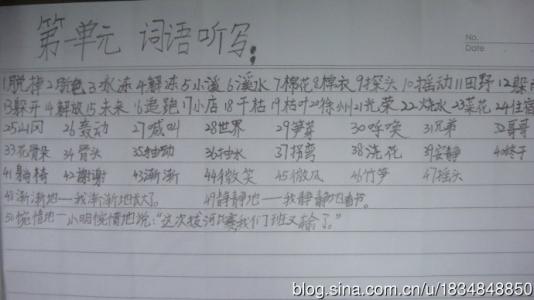 第一单元 词语听写:
No.
Date
1脱掉 2脱色 3水冻 4解冻 5小溪 6溪水 7棉花 8棉衣 9探头 10摇动 11田野 12躲
13躲开 14解放 15未来 16追跑 17小店 18干枯 19枯叶 20徐州 21光荣 22烧水 23菜花 24住宿
25山冈 26轰动 27喊叫 28世界 29笋芽 30呼唤 31兄弟 32哥哥
33花骨朵 34骨头 35抽动 36抽水 37拐弯 38浇花 39安静 40终于
41躺椅 42谢谢 43渐渐 44微笑 45微风 46竹笋 47摇头
48渐渐地—我渐渐地长大了。 49静静地—我静静地看书。
50惋惜地—小明惋惜地说:“这次拔河比赛我们班又输了。”
blog.sina.com.cn/u/1834848850